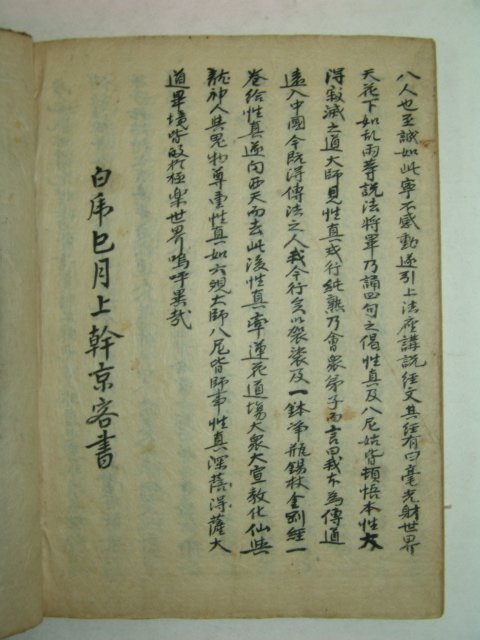 八人也至誠如此寧不感動遂引上法座講說經文其經有曰毫光射世界
天花下如乱雨等說法將畢乃誦四句之偈性真及八尼姑皆頓悟本性大
得寂滅之道大師見性真戒行純熟乃會衆弟子而言曰我本為傳道
遠入中國今既得傳法之人我今行矣以袈裟及一鉢净瓶錫杖金剛經一
卷給性真遂向西天而去此後性真率蓮花道場大衆大宣教化仙與
龍神人與鬼物尊重性真如六觀大師八尼皆師事性真深菩得薩大
道畢境皆皈於極楽世界嗚呼異哉
白虎巳月上幹京客書